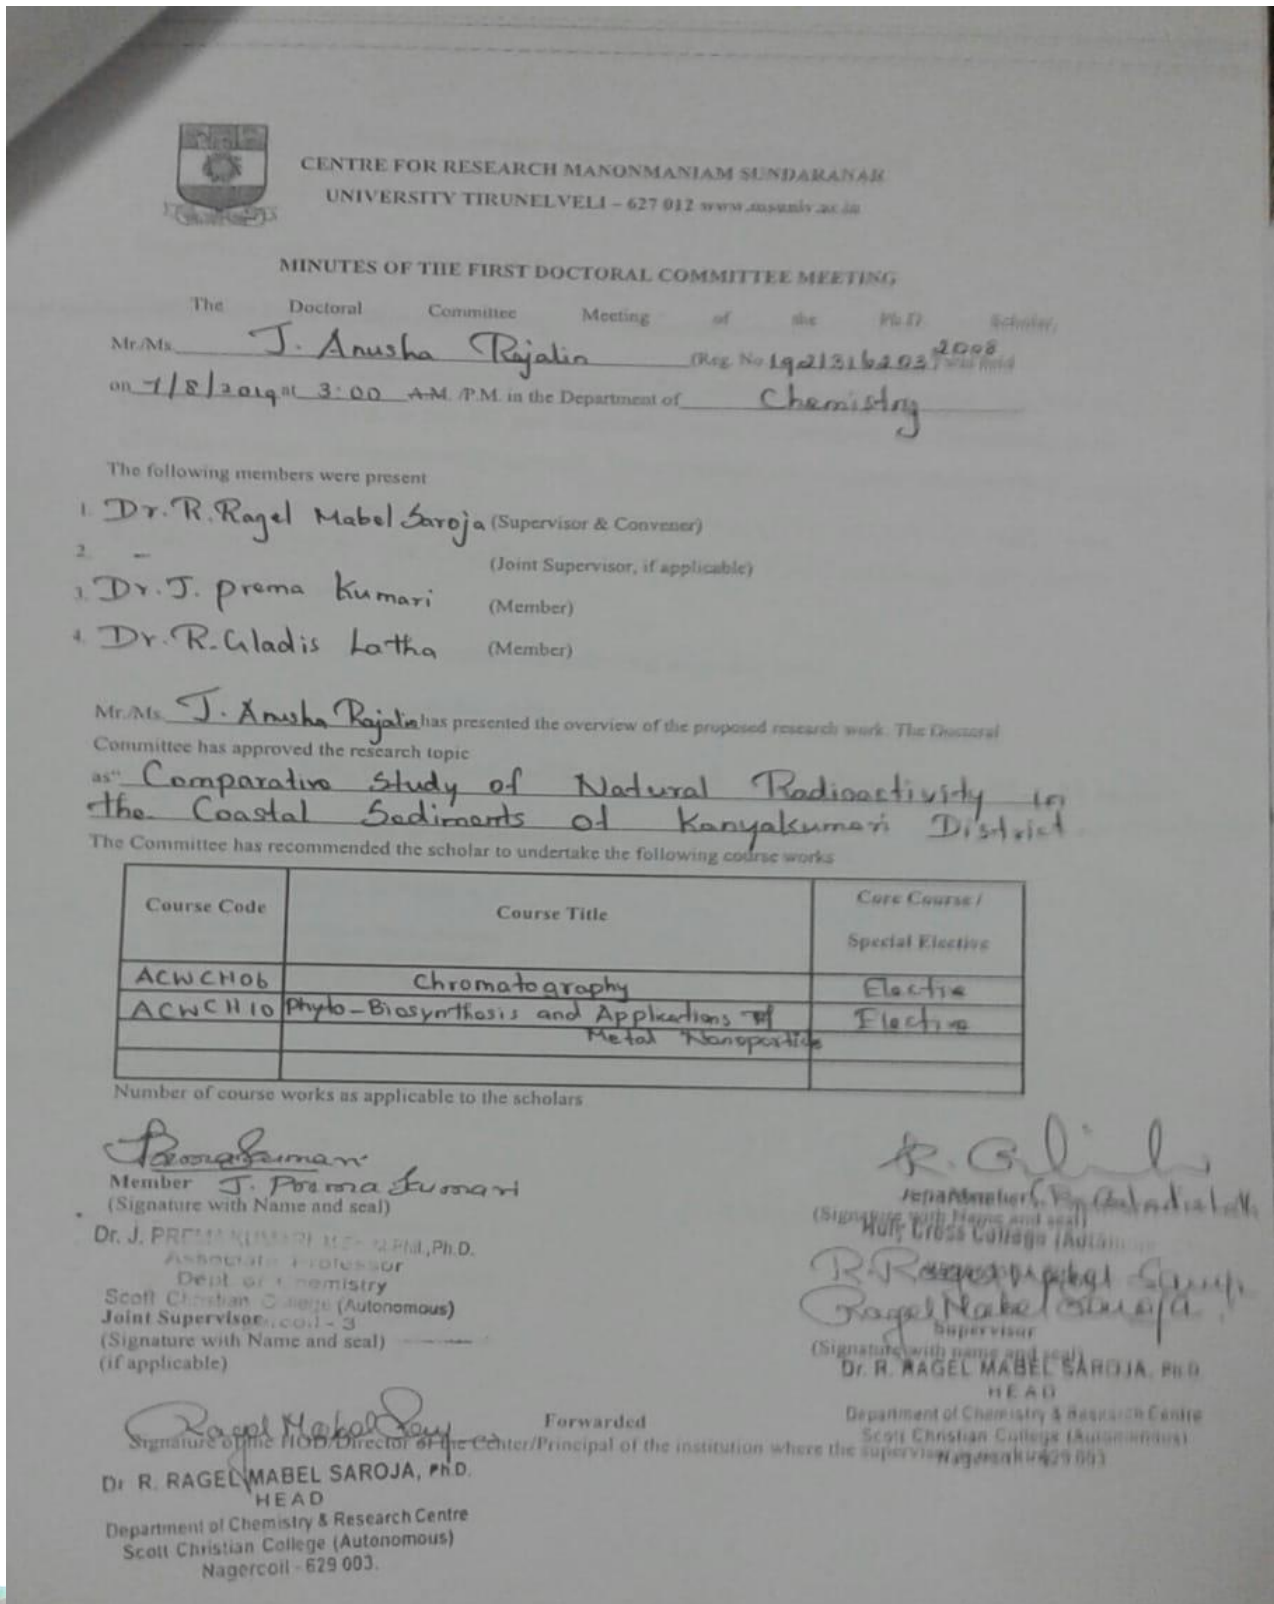 CENTRE FOR RESEARCH MANONMANIAM SUNDARANAR
UNIVERSITY TIRUNELVELI – 627 012 www.msuniv.ac.in
MINUTES OF THE FIRST DOCTORAL COMMITTEE MEETING
The Doctoral Committee Meeting of the Ph.D Scholar,
Mr./Ms. J. Anusha Rajalin (Reg. No 19213162032008) was held
on 7/8/2019 at 3:00 A.M. /P.M. in the Department of Chemistry
The following members were present
1. Dr. R. Ragel Mabel Saroja (Supervisor & Convener)
2. – (Joint Supervisor, if applicable)
3. Dr. J. Prema Kumari (Member)
4. Dr. R. Gladis Latha (Member)
Mr./Ms. J. Anusha Rajalin has presented the overview of the proposed research work. The Doctoral
Committee has approved the research topic
as" Comparative Study of Natural Radioactivity in
the Coastal Sediments of Kanyakumari District
The Committee has recommended the scholar to undertake the following course works
Course Code Course Title Core Course / Special Elective
ACWCH06 Chromatography Elective
ACWCH10 Phyto-Biosynthesis and Applications of Elective
Metal Nanoparticle
Number of course works as applicable to the scholars
Member J. Prema Kumari
(Signature with Name and seal)
Dr. J. PREMA KUMARI M.Sc., M.Phil., Ph.D.
Associate Professor
Dept. of Chemistry
Scott Christian College (Autonomous)
Joint Supervisor
(Signature with Name and seal)
(if applicable)
(Signature with Name and seal)
Holy Cross College
Ragel Mabel Saroja
Supervisor
(Signature with name and seal)
Dr. R. RAGEL MABEL SAROJA, Ph.D.
HEAD
Department of Chemistry & Research Centre
Scott Christian College (Autonomous)
Nagercoil - 629 003
Forwarded
Signature of the HOD/Director of the Center/Principal of the institution where the supervisor
Dr R. RAGEL MABEL SAROJA, Ph.D.
HEAD
Department of Chemistry & Research Centre
Scott Christian College (Autonomous)
Nagercoil - 629 003.